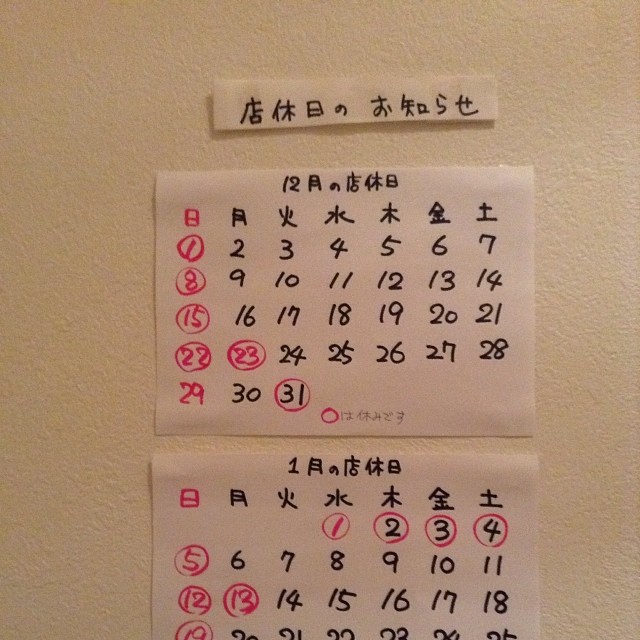 店休日のお知らせ
12月の店休日
日 月 火 水 木 金 土
1 2 3 4 5 6 7
8 9 10 11 12 13 14
15 16 17 18 19 20 21
22 23 24 25 26 27 28
29 30 31
○は休みです
1月の店休日
日 月 火 水 木 金 土
1 2 3 4
5 6 7 8 9 10 11
12 13 14 15 16 17 18
19 20 21 22 23 24 25